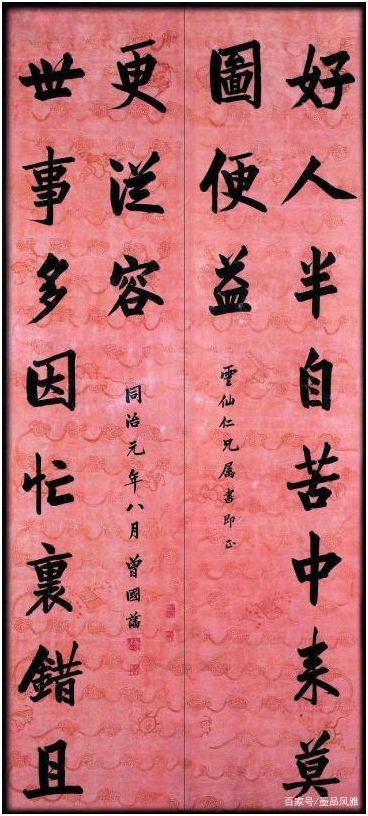 好人半自苦中来莫
圖便益
雲仙仁兄属書即正
世事多因忙裏錯且
更從容
同治元年八月曾國藩
百家号/墨品风雅